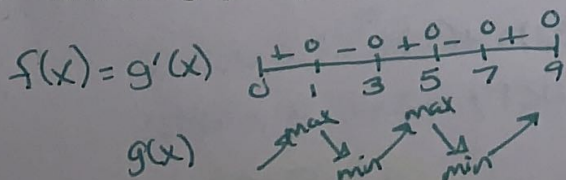 f(x) = g'(x) + 0 - 0 + 0 - 0 + 0
0 1 3 5 7 9
g(x) max min max min